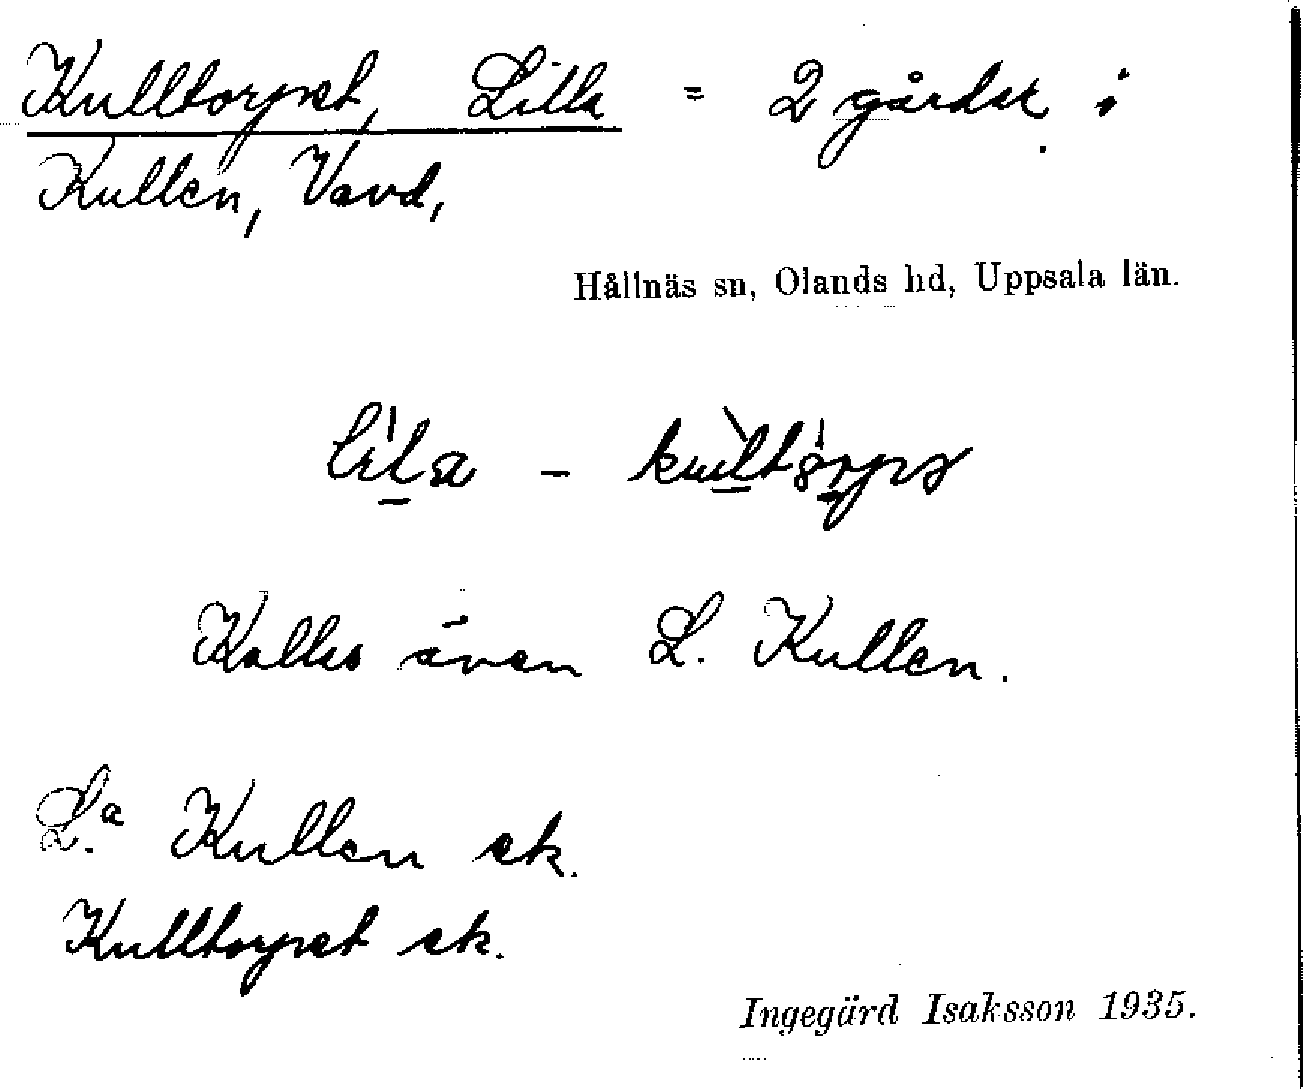 Kulltorpet, Lilla = 2 gårdar i
Kullen, Vavd,
Hållnäs sn, Olands hd, Uppsala län.
lila - kultörpə
Kallas även L. Kullen.
L:a Kullen ek.
Kulltorpet ek.
Ingegärd Isaksson 1935.